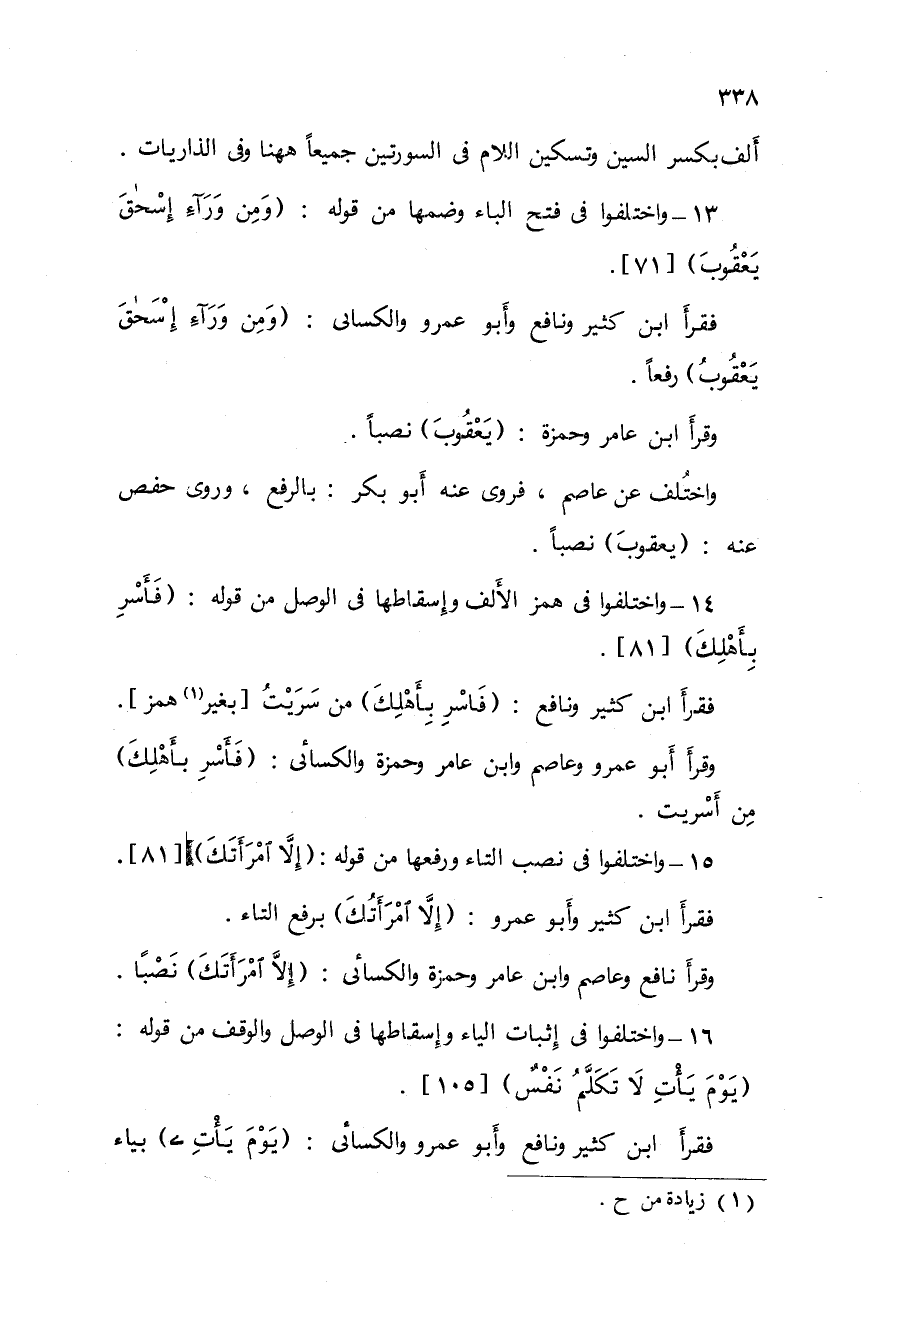 ٣٣٨
ألف بكسر السين وتسكين اللام فى السورتين جميعاً ههنا وفى الذاريات .
١٣ – واختلفوا فى فتح الباء وضمها من قوله : (وَمِن وَرَآءِ إِسْحٰقَ
يَعْقُوبَ) [٧١].
فقرأ ابن كثير ونافع وأبو عمرو والكسائى : (وَمِن وَرَآءِ إِسْحٰقَ
يَعْقُوبُ) رفعاً .
وقرأ ابن عامر وحمزة : (يَعْقُوبَ) نصباً .
واختُلف عن عاصم ، فروى عنه أبو بكر : بالرفع ، وروى حفص
عنه : (يعقوبَ) نصباً .
١٤ – واختلفوا فى همز الألف وإسقاطها فى الوصل من قوله : (فَأَسْرِ
بِأَهْلِكَ) [٨١] .
فقرأ ابن كثير ونافع : (فَاسْرِ بِأَهْلِكَ) من سَرَيْتُ [بغير(١) همز].
وقرأ أبو عمرو وعاصم وابن عامر وحمزة والكسائى : (فَأَسْرِ بِأَهْلِكَ)
مِن أَسْريت .
١٥ – واختلفوا فى نصب التاء ورفعها من قوله : (إِلَّا ٱمْرَأَتَكَ) [٨١].
فقرأ ابن كثير وأبو عمرو : (إِلَّا ٱمْرَأَتُكَ) برفع التاء .
وقرأ نافع وعاصم وابن عامر وحمزة والكسائى : (إِلاَّ ٱمْرَأَتَكَ) نَصْبًا .
١٦ – واختلفوا فى إثبات الياء وإسقاطها فى الوصل والوقف من قوله :
(يَوْمَ يَأْتِ لَا تَكَلَّمُ نَفْسٌ) [١٠٥] .
فقرأ ابن كثير ونافع وأبو عمرو والكسائى : (يَوْمَ يَأْتِ ے) بياء
(١) زيادة من ح .